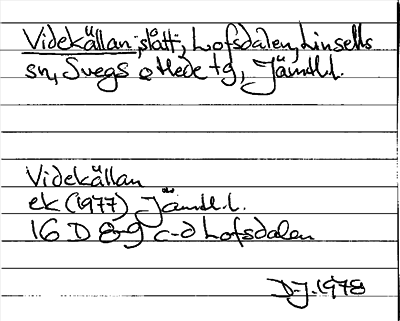 Videkällan, slått-, Lofsdalen, Linsells
sn, Svegs o Hede tg, Jämtl.l.
Videkällan
ek (1977) Jämtl.l.
16 D 8-9 c-d Lofsdalen
D-J. 1978